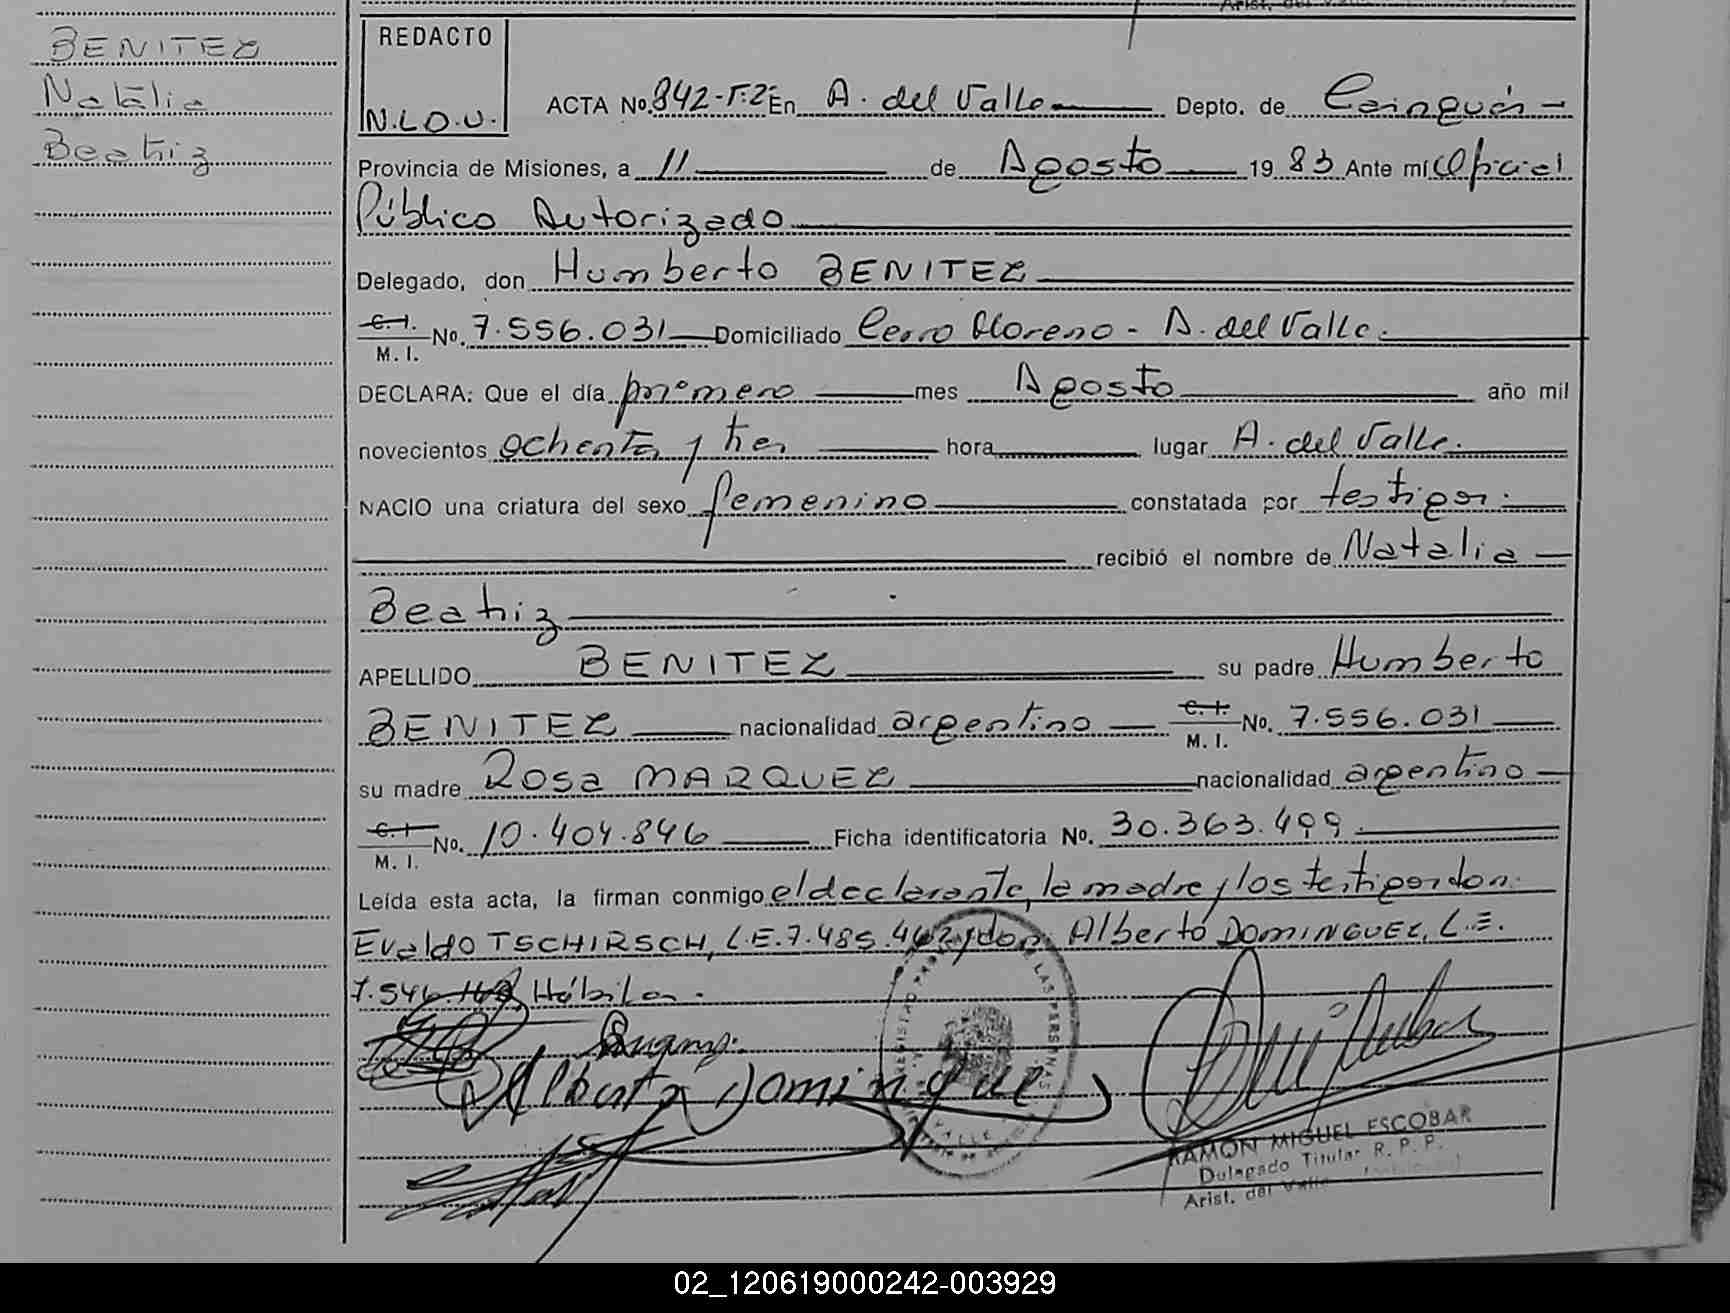 BENITEZ
Natalia
Beatriz
REDACTO
N.L.O.U.
ACTA No. 842-T:2º En A. del Valle Depto. de Cainguás
Provincia de Misiones, a 11 de Agosto 19 83 Ante mí Oficial
Público Autorizado
Delegado, don Humberto BENITEZ
C. I. M. I. No. 7.556.031 Domiciliado Cerro Moreno - A. del Valle.
DECLARA: Que el día primero mes Agosto año mil
novecientos ochenta y tres hora lugar A. del Valle.
NACIO una criatura del sexo femenino constatada por testigos.
recibió el nombre de Natalia
Beatriz
APELLIDO BENITEZ su padre Humberto
BENITEZ nacionalidad argentino C. I. M. I. No. 7.556.031
su madre Rosa MARQUEZ nacionalidad argentino
C. I. M. I. No. 10.404.846 Ficha identificatoria No. 30.363.499.
Leída esta acta, la firman conmigo el declarante, la madre y los testigos don
Evaldo TSCHIRSCH, L.E. 7.485.462 y don Alberto DOMINGUEZ, L.E.
7.546. Hábiles.
Alberto Dominguez
RAMON MIGUEL ESCOBAR
Delegado Titular R. P. P.
Arist. del Valle
02_120619000242-003929